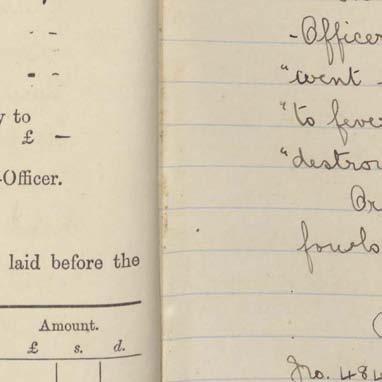 y to
£ –
-Officer.
laid before the
Amount.
£ s. d.
-Officer
"went -
"to feve
"destroy
Or
fowls
No. 484